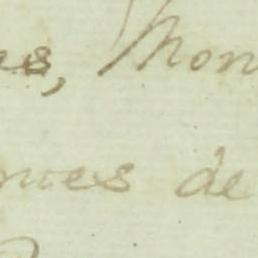 es, Mon
mes de